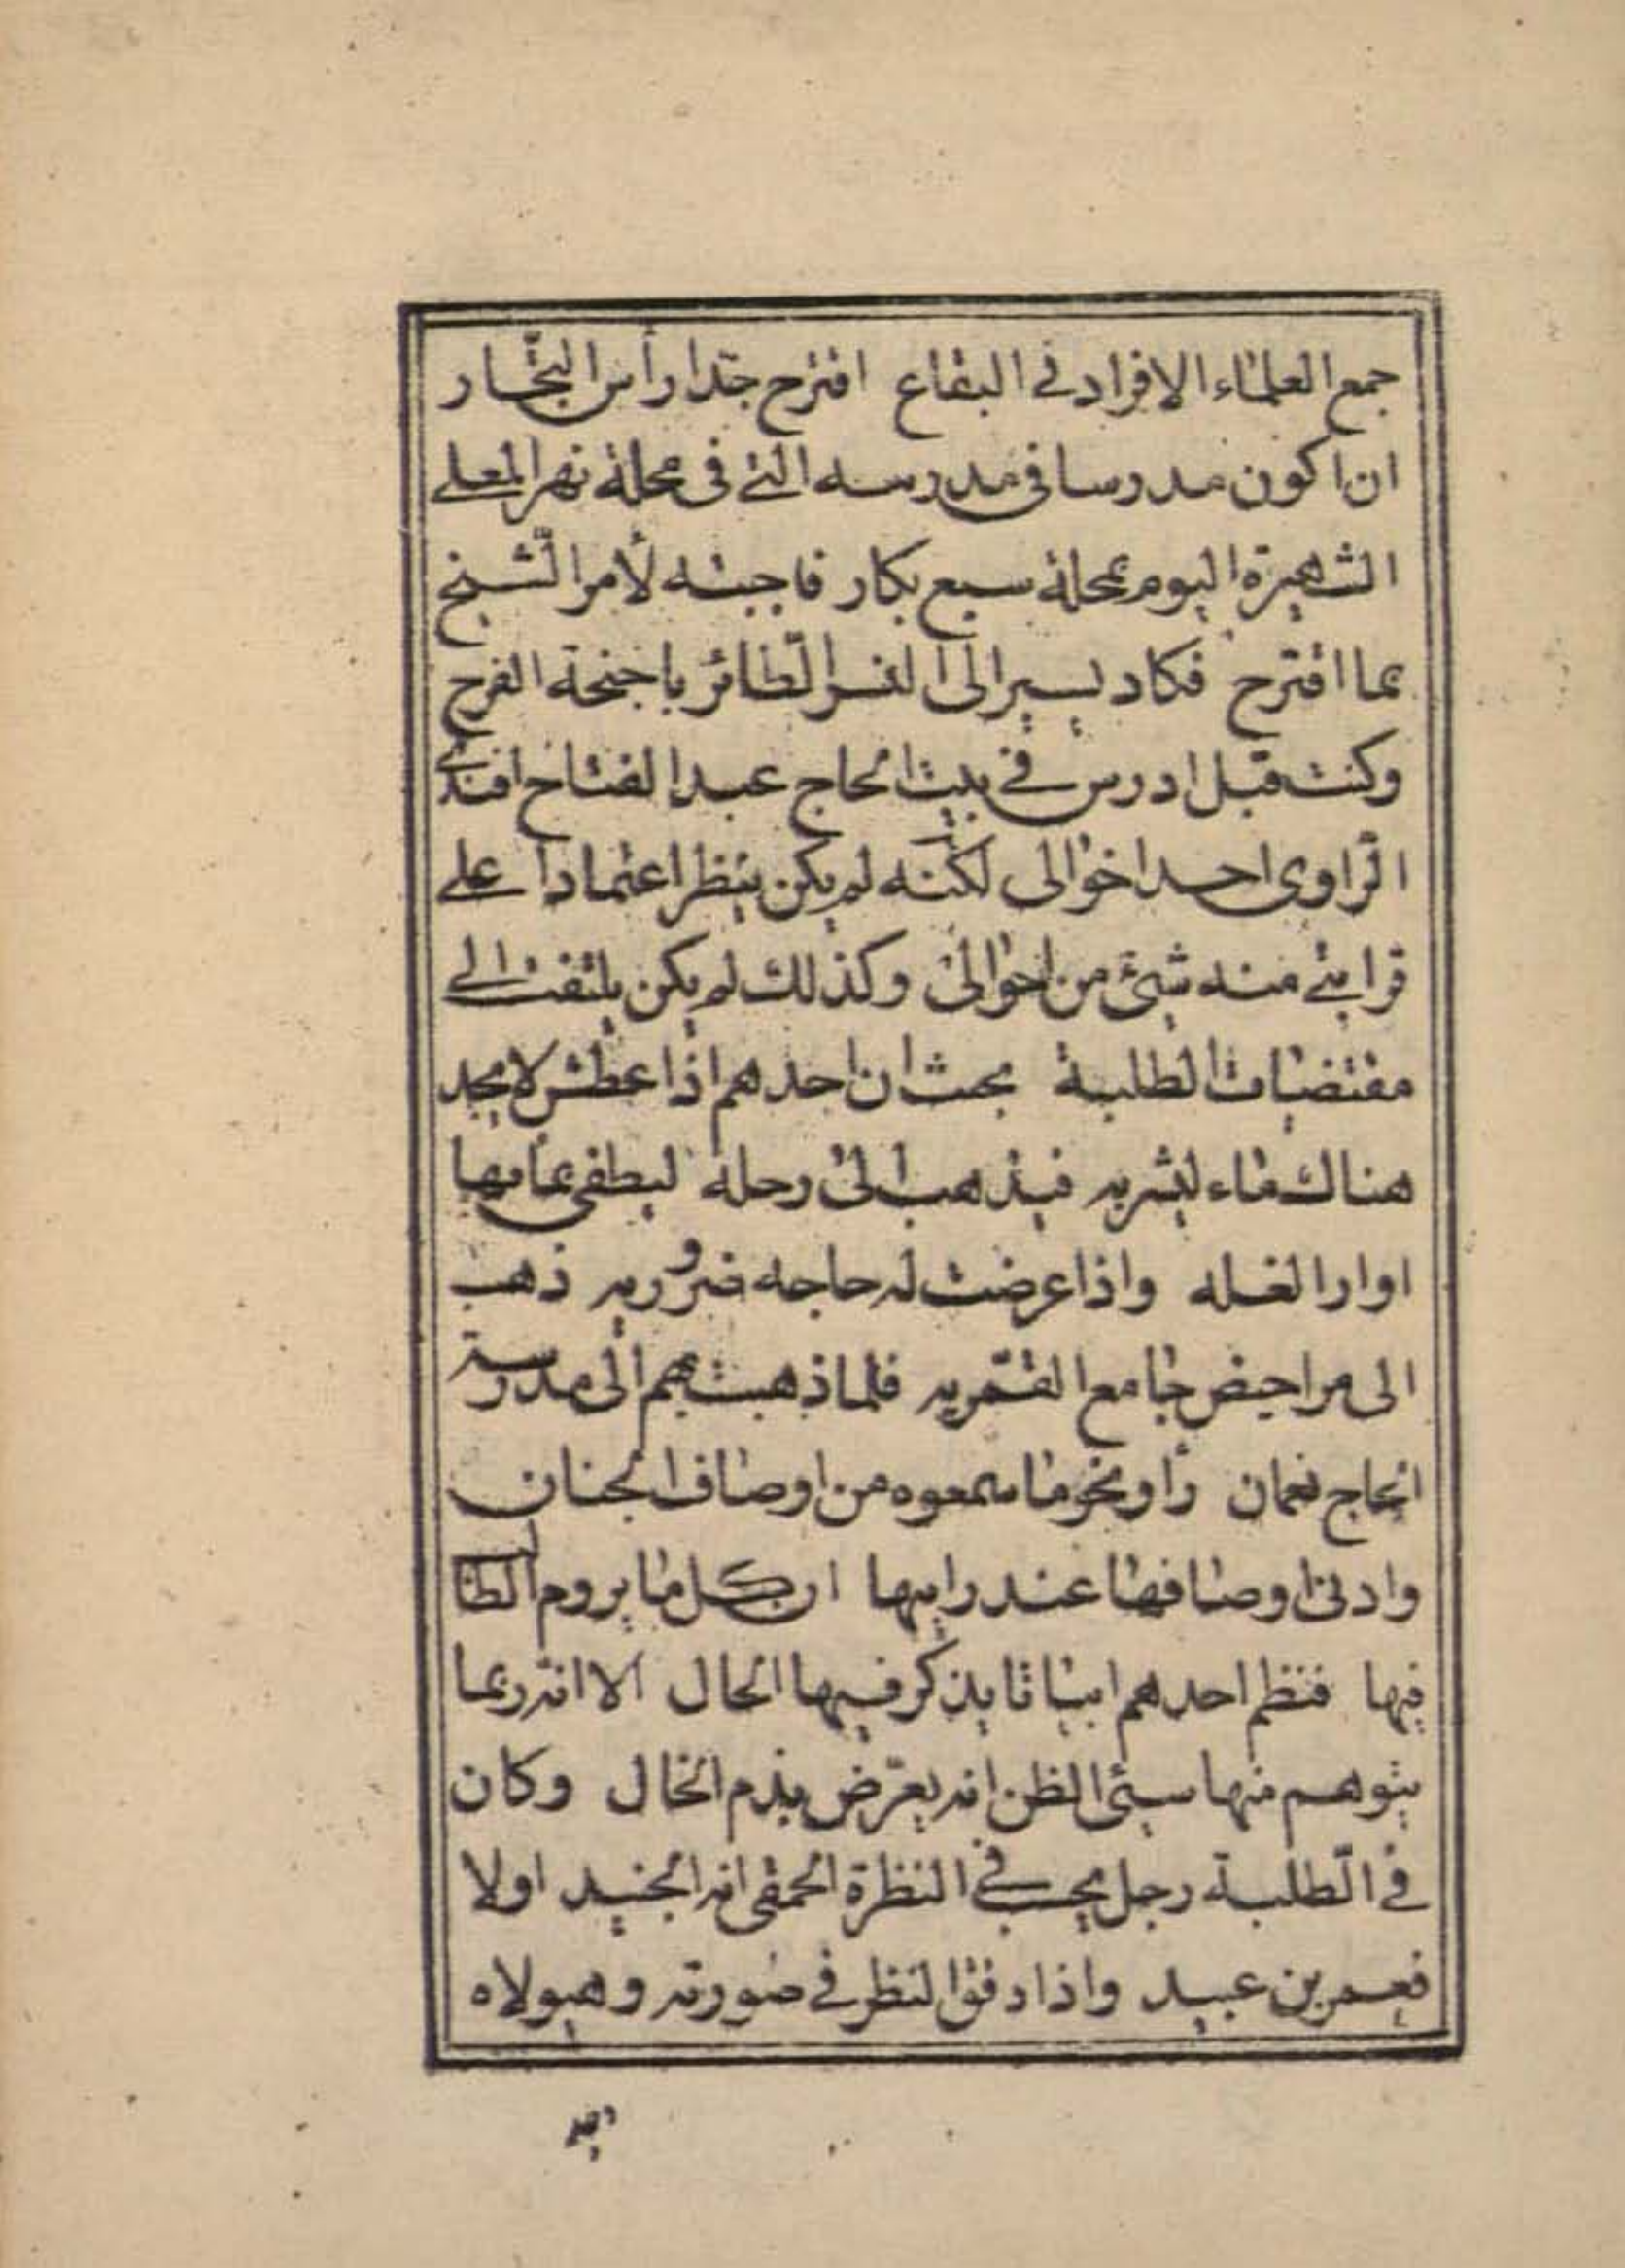 جمع العلماء الافراد في البقاع افترح جدا رأس التجار
ان اكون مدرسا في مدرسه التي في محلة نهر المعلى
الشهيرة اليوم بمحلة سبع بكار فاجبته لأمر الشيخ
بما اقترح فكاد يسير الى النسر الطائر باجنحة الفرح
وكنت قبل ادرس في بيت الحاج عبد الفتاح افندي
الراوى احد اخوالى لكنه لم يكن ينظر اعتمادا على
قرابتي منه شئ من احوالى وكذلك لم يكن يلتفت الى
مقتضيات الطلبة بحيث ان احدهم اذا عطش لا يجد
هناك ماء ليشربه فيذهب الى رحله ليطفى بمامها
اوار الغله واذا عرضت له حاجه ضروريه ذهب
الى مراحيض جامع القمريه فلما ذهبت بهم الى مدرسة
الحاج نعمان رأو نحو ما سمعوه من اوصاف الجنان
وادنى اوصافها عند رايها ان كل ما يروم الطالب
فيها فنظم احدهم ابياتا يذكر فيها الحال الا انه ربما
يتوهم منها سيئ الظن انه يعرض بذم الخال وكان
في الطلبة رجل يحسب في النظرة الحمقى انه الجنيد اولا
فعمر بن عبيد واذا دقق النظر في صورته وهيولاه